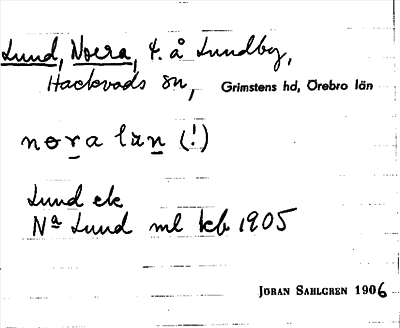 Lund, Norra, t. å Lundby,
Hackvads sn, Grimstens hd, Örebro län
nora län (!)
Lund ek
Nª Lund ml kb 1905
JÖRAN SAHLGREN 1906